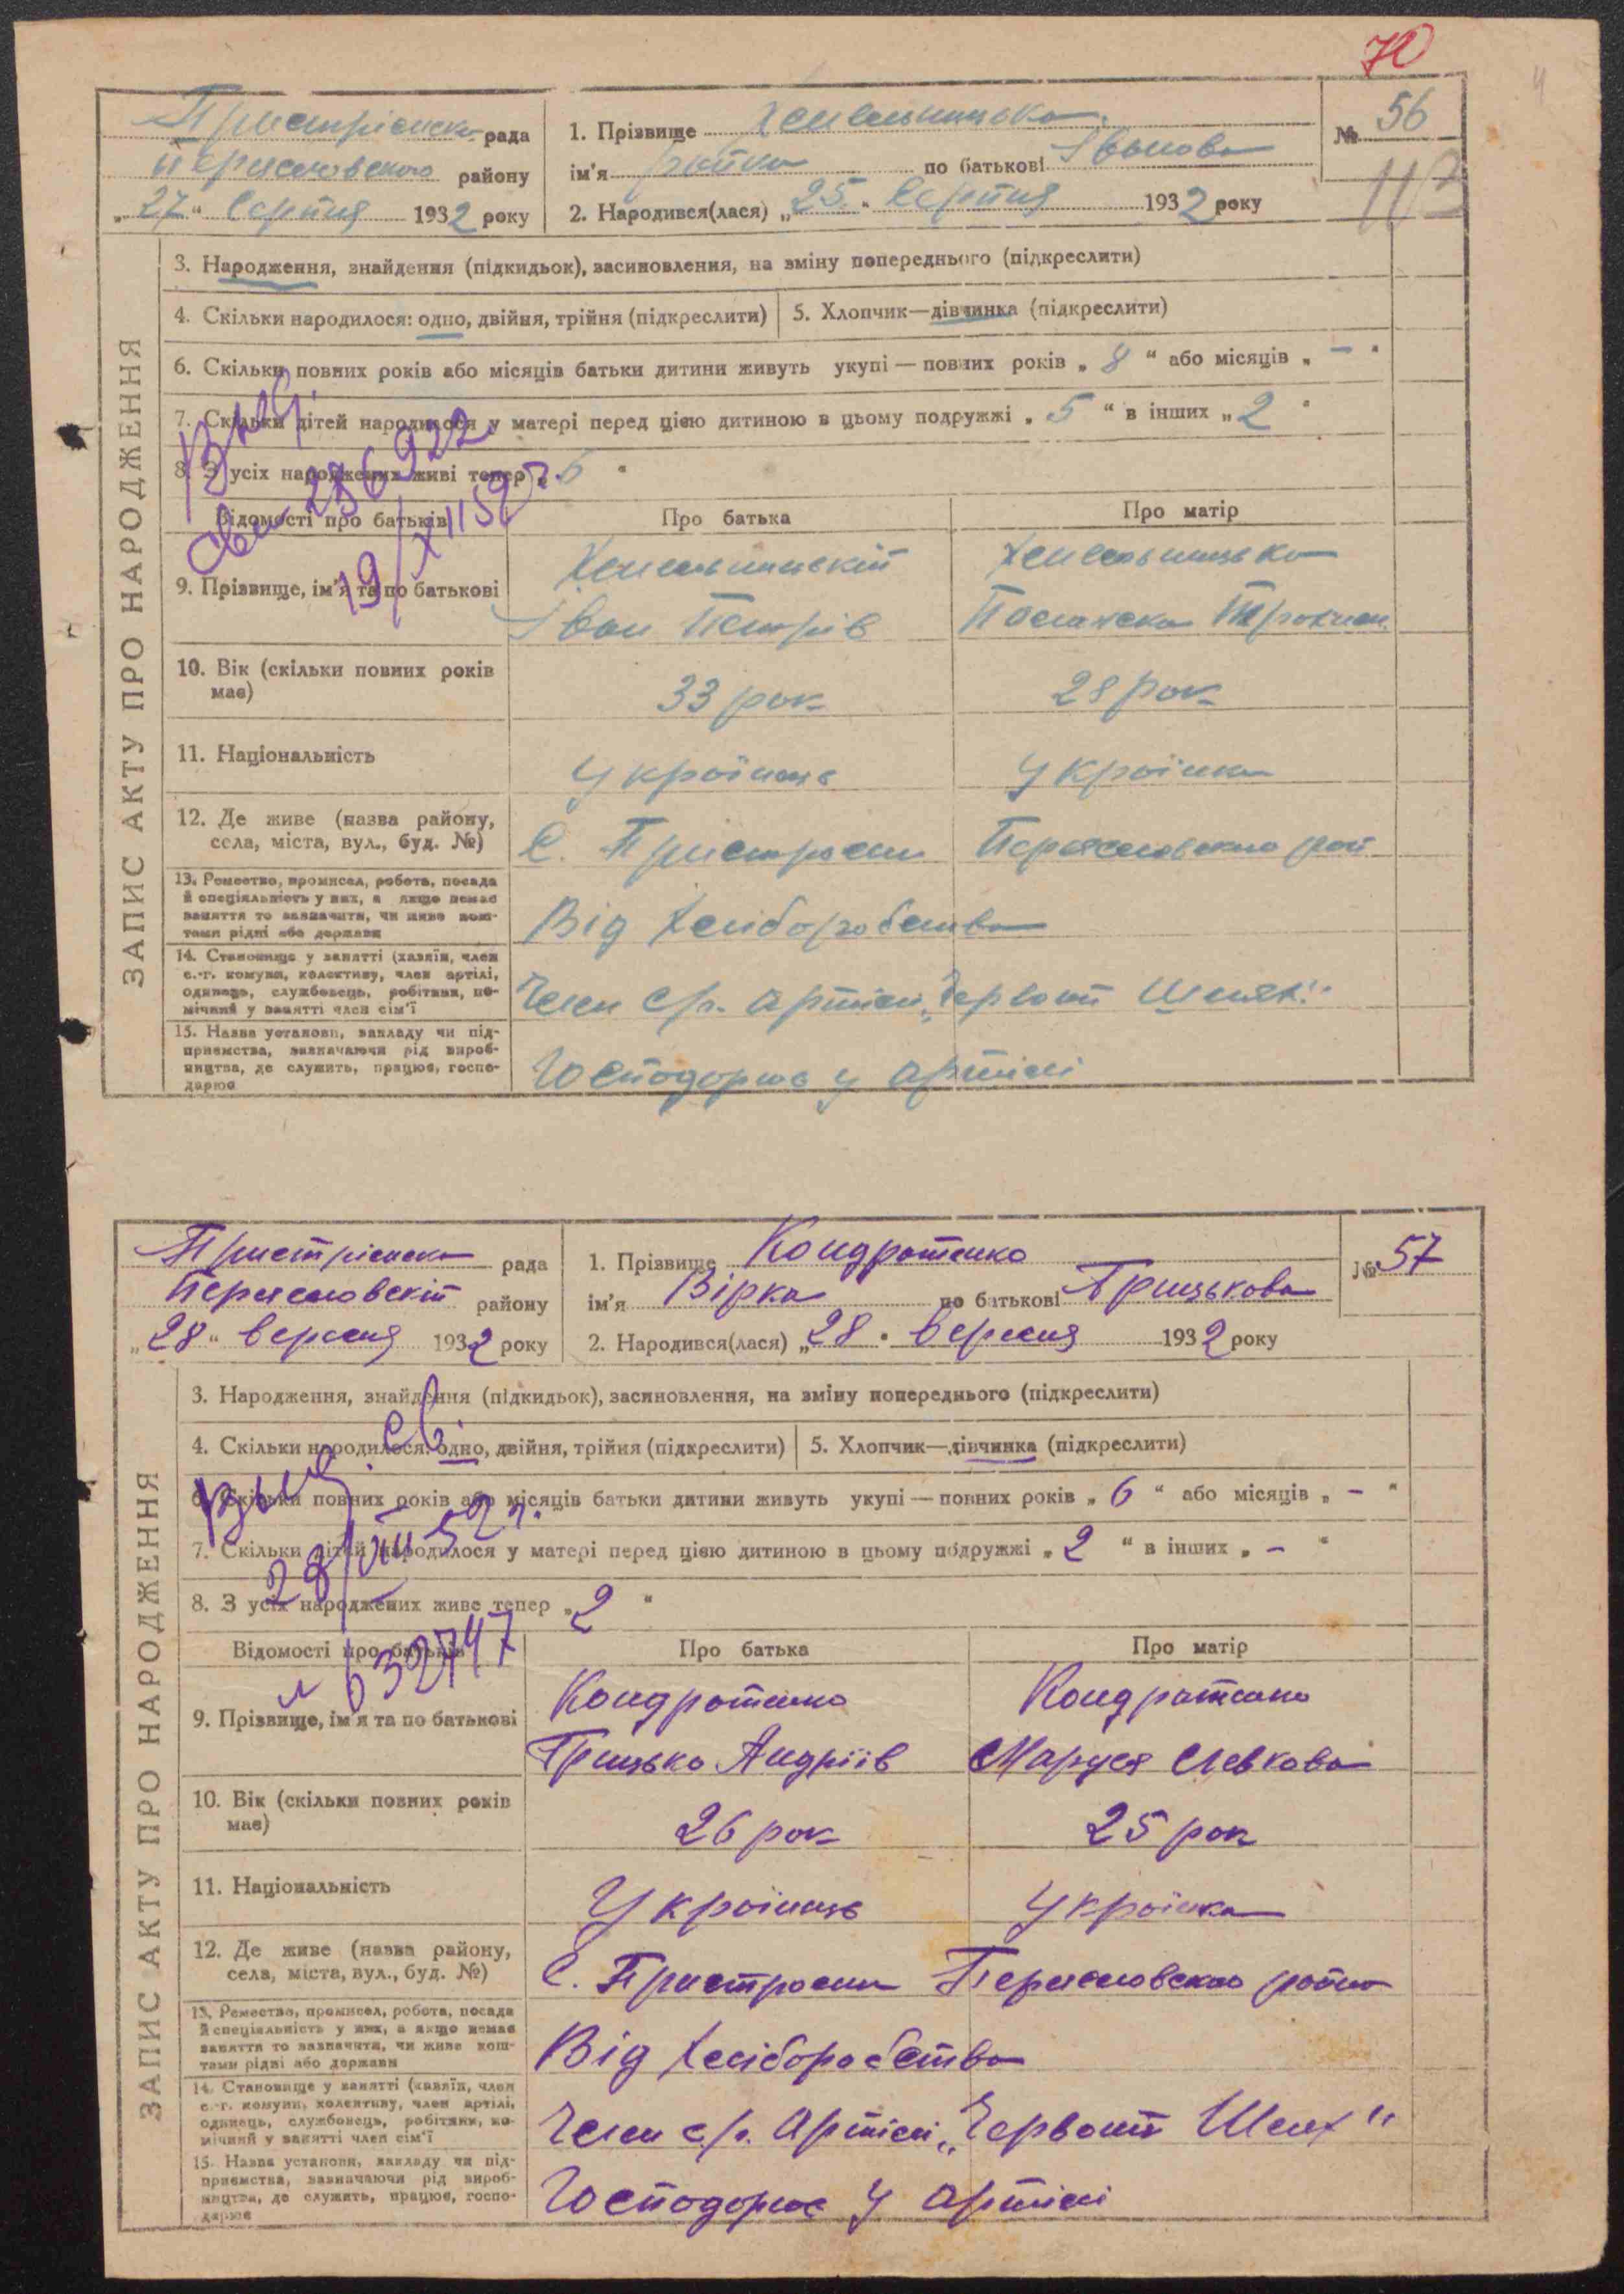 70
Пристрімська рада
Переяславського району
„27“ Серпня 1932 року
1. Прізвище Хмельницька
ім'я по батькові Іванова
2. Народився(лася) „25“ Серпня 1932 року
№ 56
113
ЗАПИС АКТУ ПРО НАРОДЖЕННЯ
3. Народження, знайдення (підкидьок), засиновлення, на зміну попереднього (підкреслити)
4. Скільки народилося: одно, двійня, трійня (підкреслити)
5. Хлопчик—дівчинка (підкреслити)
6. Скільки повних років або місяців батьки дитини живуть укупі — повних років „8“ або місяців „–“
7. Скільки дітей народилося у матері перед цією дитиною в цьому подружжі „5“ в інших „2“
8. З усіх народжених живі тепер „5“
Відомості про батьків
Про батька
Про матір
9. Прізвище, ім'я та по батькові
Хмельницькій
Іван Петрів
Хмельницька
10. Вік (скільки повних років має)
33 рок
28 рок
11. Національність
Українець
Українка
12. Де живе (назва району, села, міста, вул., буд. №)
С. Пристроми Переяславського рай
13. Ремество, промисел, робота, посада
й спеціяльність у них, а якщо немає
заняття то зазначити, чи живе кош-
тами рідні або держави
Від Хліборобства
14. Становище у занятті (хазяїн, член
с.-г. комуни, колективу, член артілі,
одинець, службовець, робітник, по-
мічний у занятті член сім'ї
Член с/г. артілі „Червоний Шлях“
15. Назва установи, закладу чи під-
приємства, зазначаючи рід вироб-
ництва, де служить, працює, госпо-
дарює
Господорює у артілі
19/XII 52
Пристрімська рада
Переяславскій району
„28“ вересня 1932 року
1. Прізвище Кондратенко
ім'я Вірка по батькові Грицькова
2. Народився(лася) „28“ вересня 1932 року
№ 57
ЗАПИС АКТУ ПРО НАРОДЖЕННЯ
3. Народження, знайдення (підкидьок), засиновлення, на зміну попереднього (підкреслити)
4. Скільки народилося: одно, двійня, трійня (підкреслити)
5. Хлопчик—дівчинка (підкреслити)
6. Скільки повних років або місяців батьки дитини живуть укупі — повних років „6“ або місяців „–“
7. Скільки дітей народилося у матері перед цією дитиною в цьому подружжі „2“ в інших „–“
8. З усіх народжених живе тепер „2“
Відомості про батьків
Про батька
Про матір
9. Прізвище, ім'я та по батькові
Кондратенко
Грицько Андріїв
Кондратенко
Маруся Левкова
10. Вік (скільки повних років має)
26 рок
25 рок
11. Національність
Українець
Українка
12. Де живе (назва району, села, міста, вул., буд. №)
С. Пристроми Переяславскаo району
13. Ремество, промисел, робота, посада
й спеціяльність у них, а якщо немає
заняття то зазначити, чи живе кош-
тами рідні або держави
Від Хліборобства
14. Становище у занятті (хазяїн, член
с.-г. комуни, колективу, член артілі,
одинець, службовець, робітник, по-
мічний у занятті член сім'ї
Член с/г. Артілі „Червоний Шлях“
15. Назва установи, закладу чи під-
приємства, зазначаючи рід вироб-
ництва, де служить, працює, госпо-
дарює
Господорює у артілі